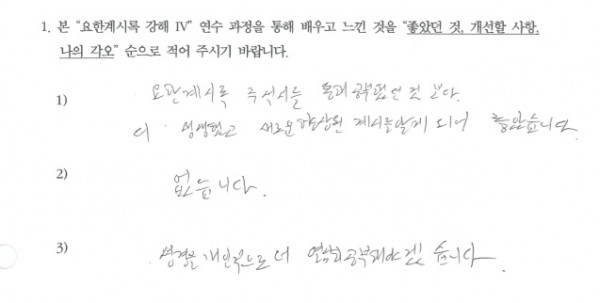 1. 본 "요한계시록 강해 IV" 연수 과정을 통해 배우고 느낀 것을 "좋았던 것, 개선할 사항,
나의 각오" 순으로 적어 주시기 바랍니다.
1) 요한계시록 주석서를 통해 공부했던 것 같다.
더 생생했고 새로운 향상된 계시를 알게 되어 좋았습니다.
2) 없습니다.
3) 성경을 개인적으로 더 열심히 공부해야겠습니다.